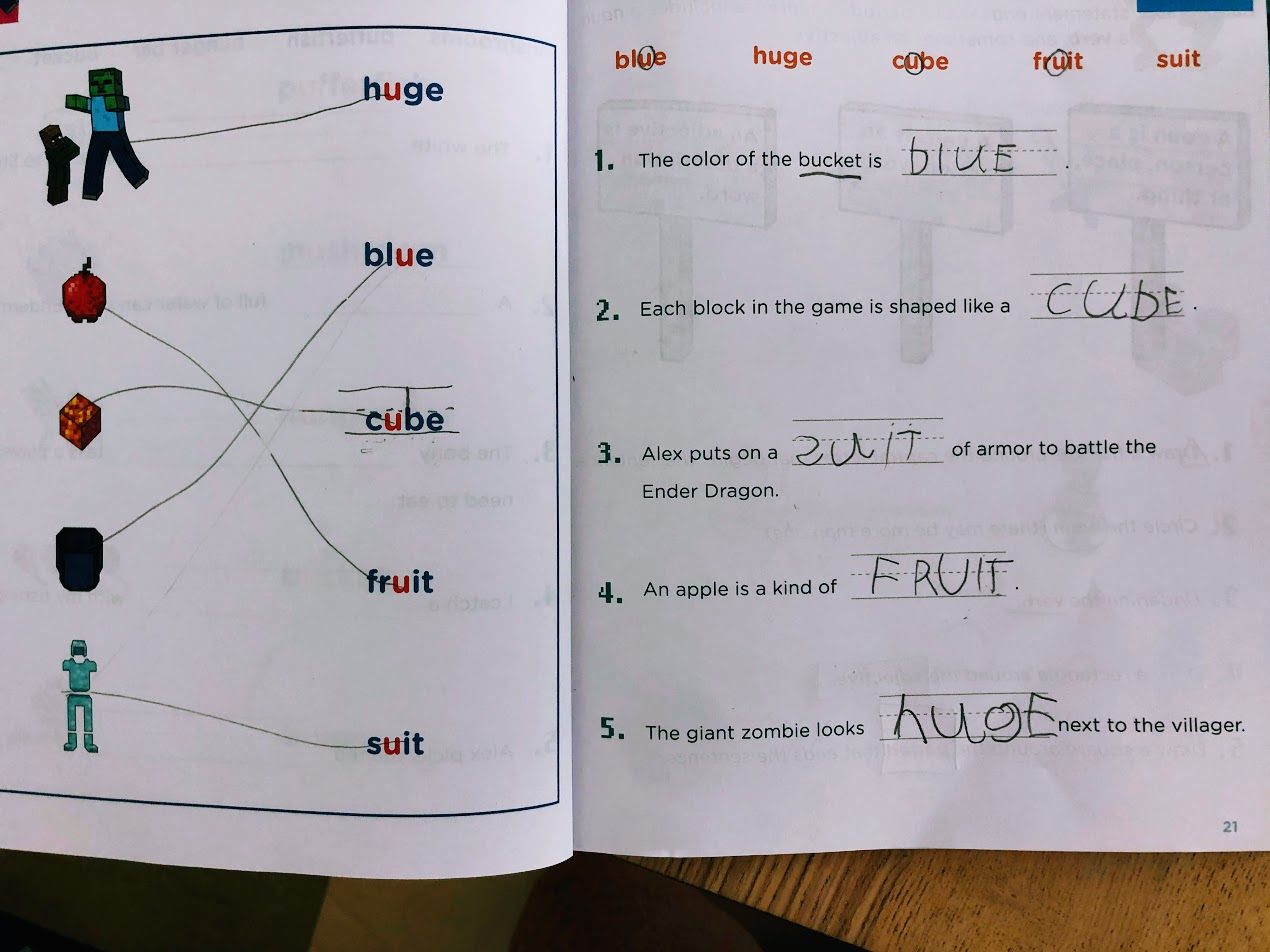 huge
blue
cube
fruit
suit
blue huge cube fruit suit
1. The color of the bucket is blUE .
2. Each block in the game is shaped like a CUbE .
3. Alex puts on a SUIT of armor to battle the
Ender Dragon.
4. An apple is a kind of FRUIT .
5. The giant zombie looks hUgE next to the villager.
21